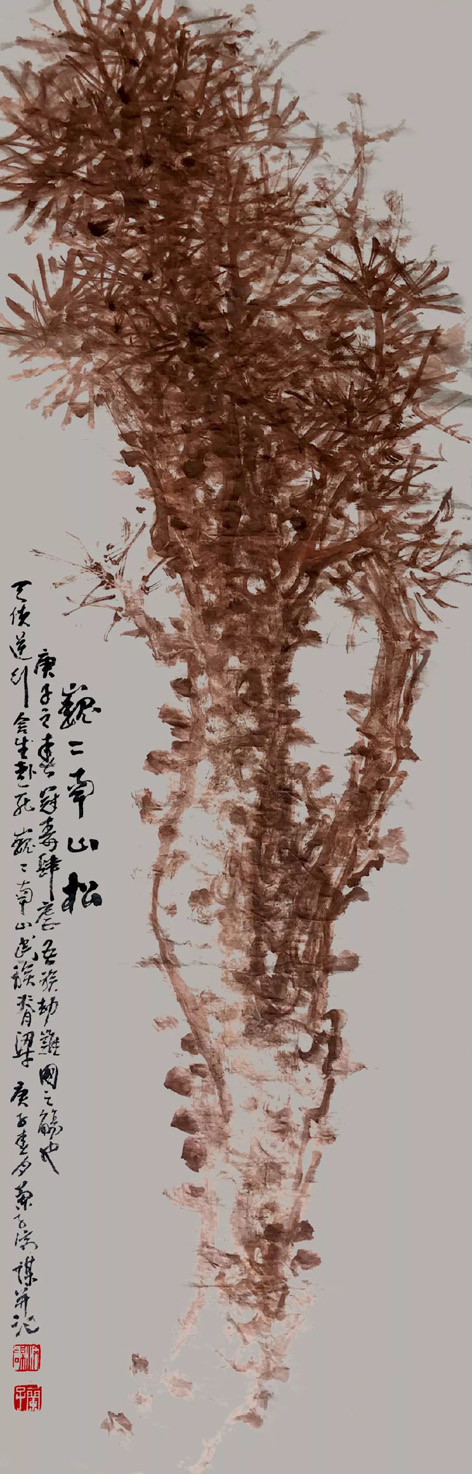 巍〻南山松
庚子之春冠毒肆虐吾族劫難國之觴也
天使逆行舍生赴死巍〻南山民族脊梁 庚子春月 謀并记